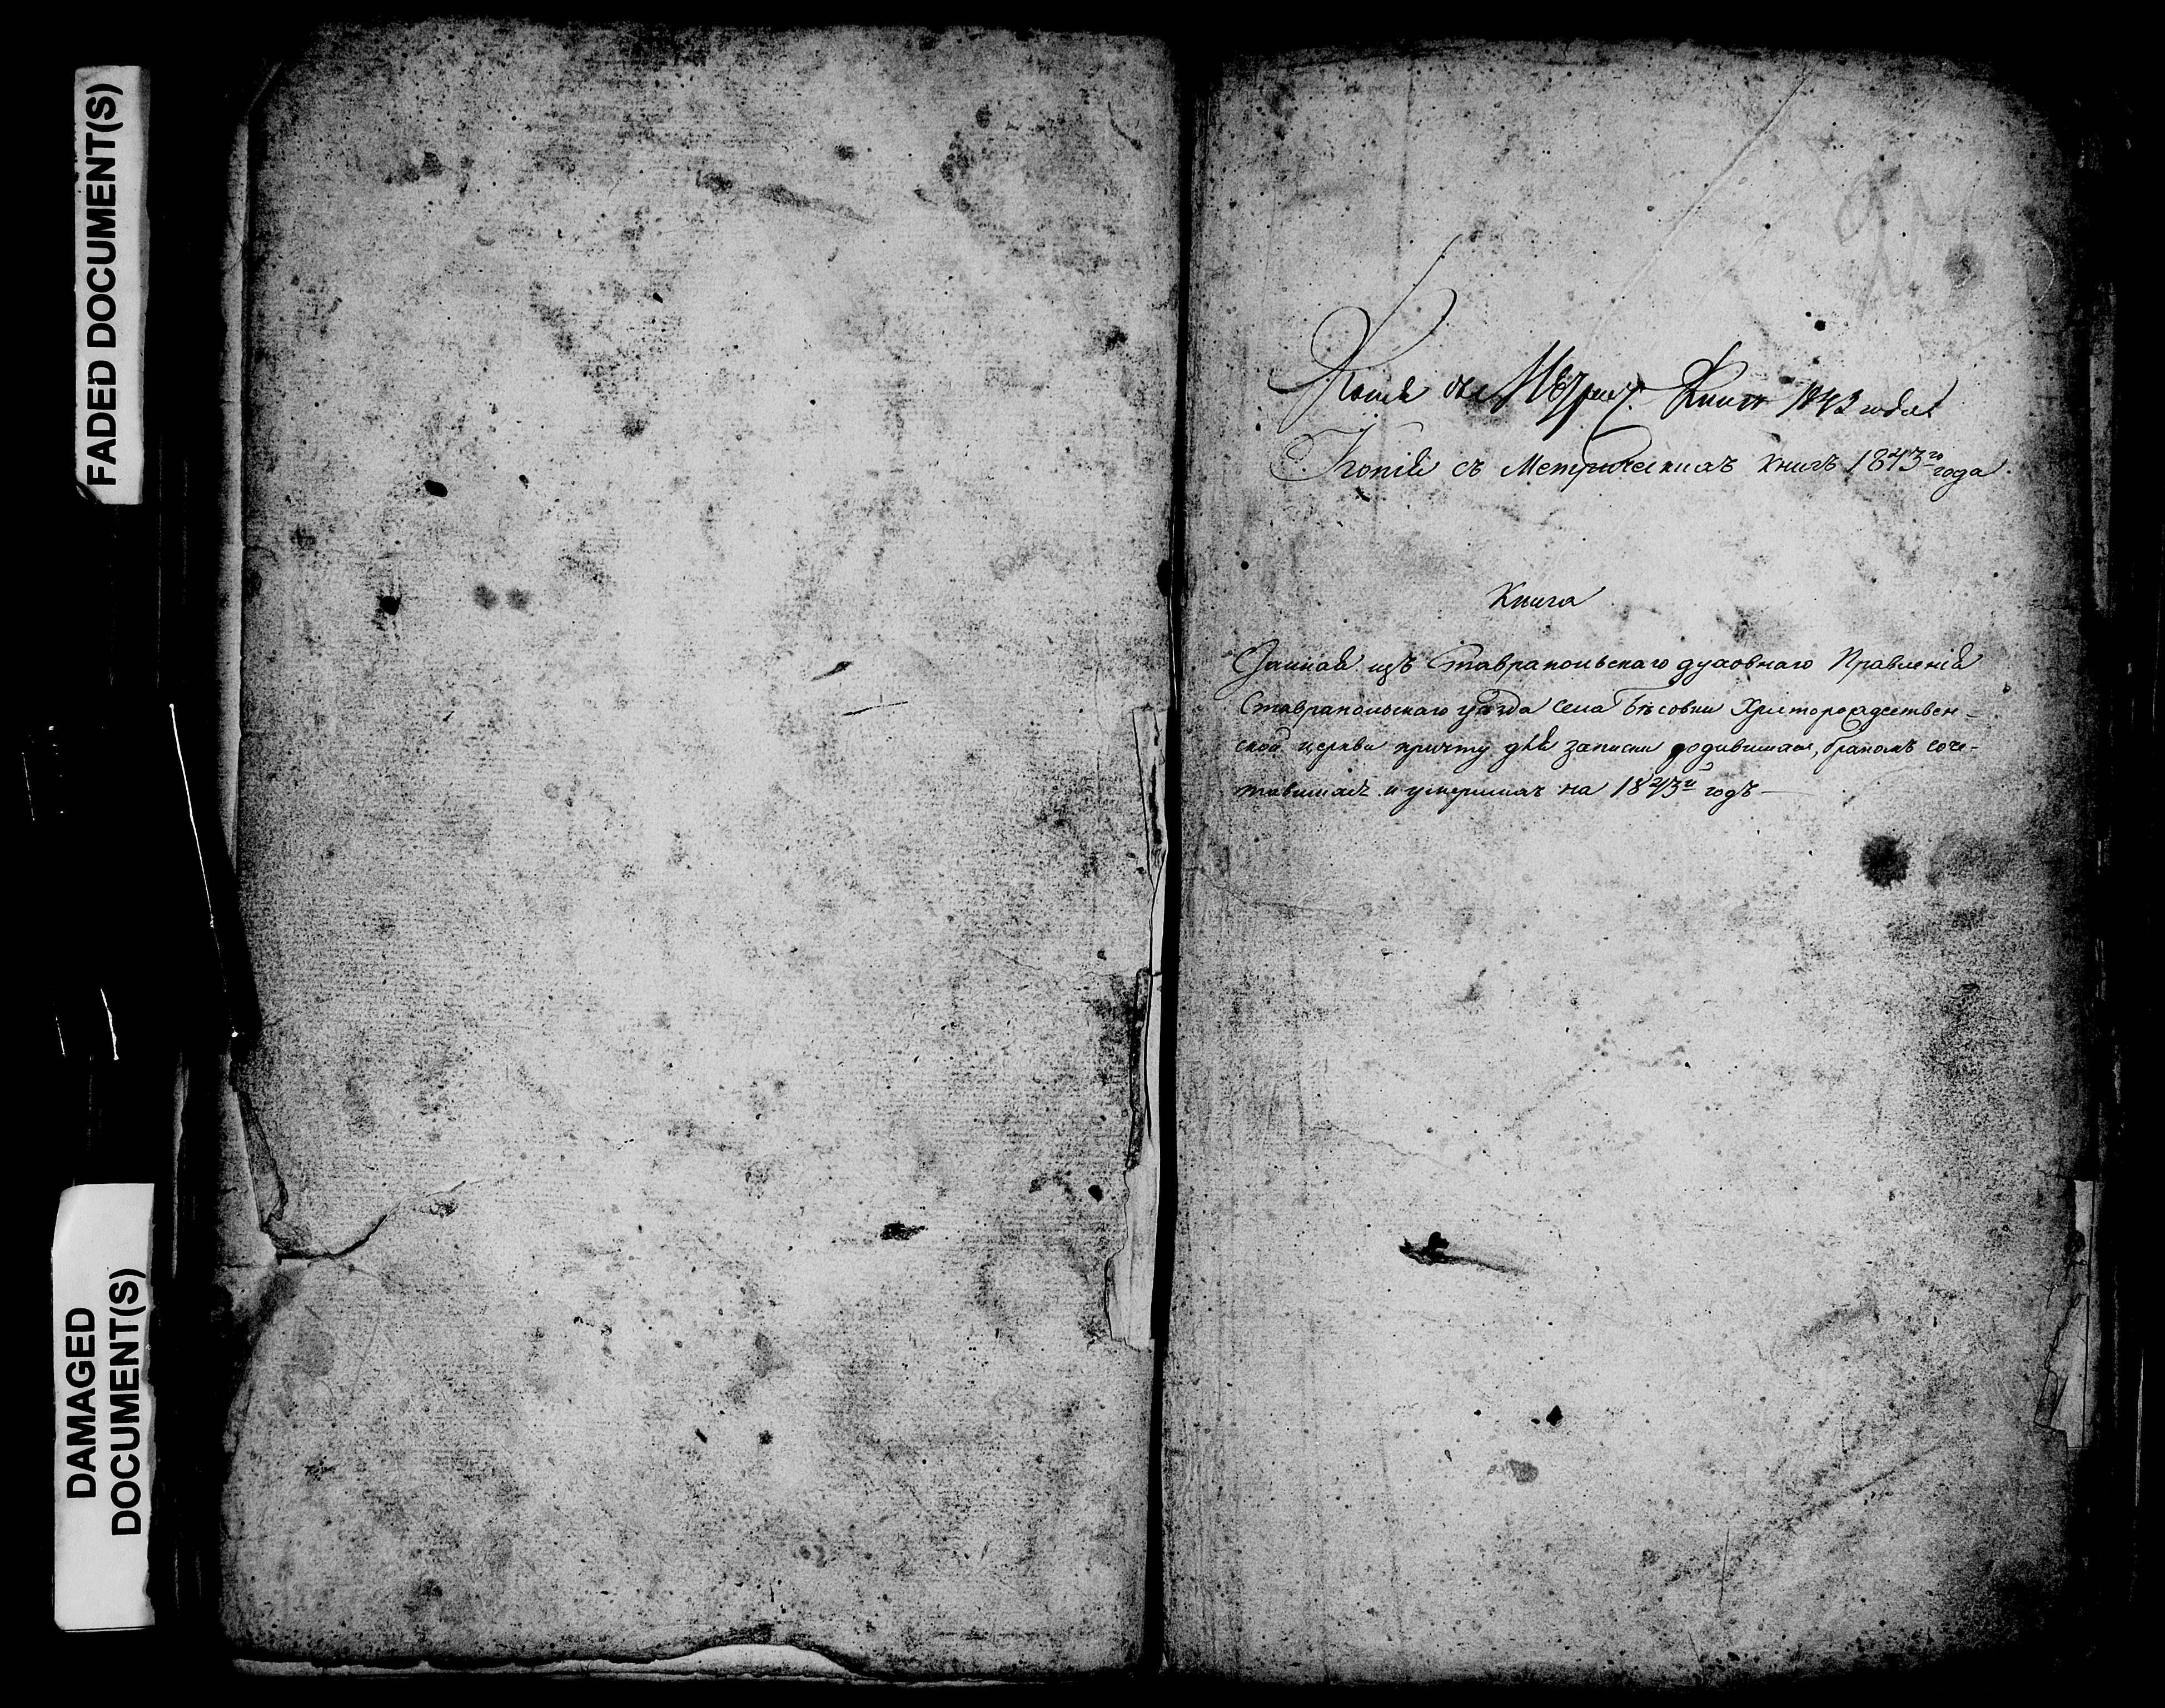 FADED DOCUMENT(S)
DAMAGED
DOCUMENT(S)
Копія съ Метрич. Книгъ 1843 года
Копія съ Метрическихъ книгъ 1843го года.
Книга
Данная изъ Ставрапольскаго духовнаго Правленія
Ставрапольскаго уѣзда села Бѣсовки Христорождествен-
ской церкви причту для записки родившихся, бракомъ соче-
тавшихся и умершихъ на 1843й годъ